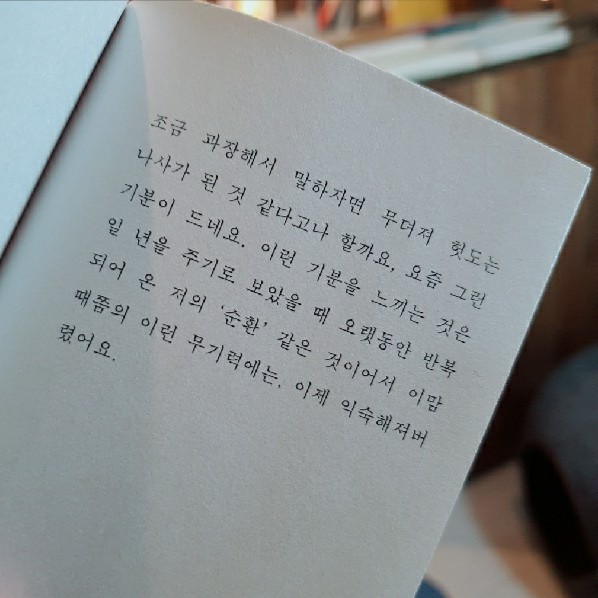 조금 과장해서 말하자면 무더져 헛도는
나사가 된 것 같다고나 할까요, 요즘 그런
기분이 드네요. 이런 기분을 느끼는 것은
일 년을 주기로 보았을 때 오랫동안 반복
되어 온 저의 ‘순환’ 같은 것이어서 이맘
때쯤의 이런 무기력에는, 이제 익숙해져버
렸어요.